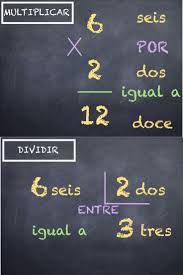 MULTIPLICAR
6 seis
X POR
2 dos
igual a
12 doce
DIVIDIR
6 seis 2 dos
ENTRE
igual a 3 tres